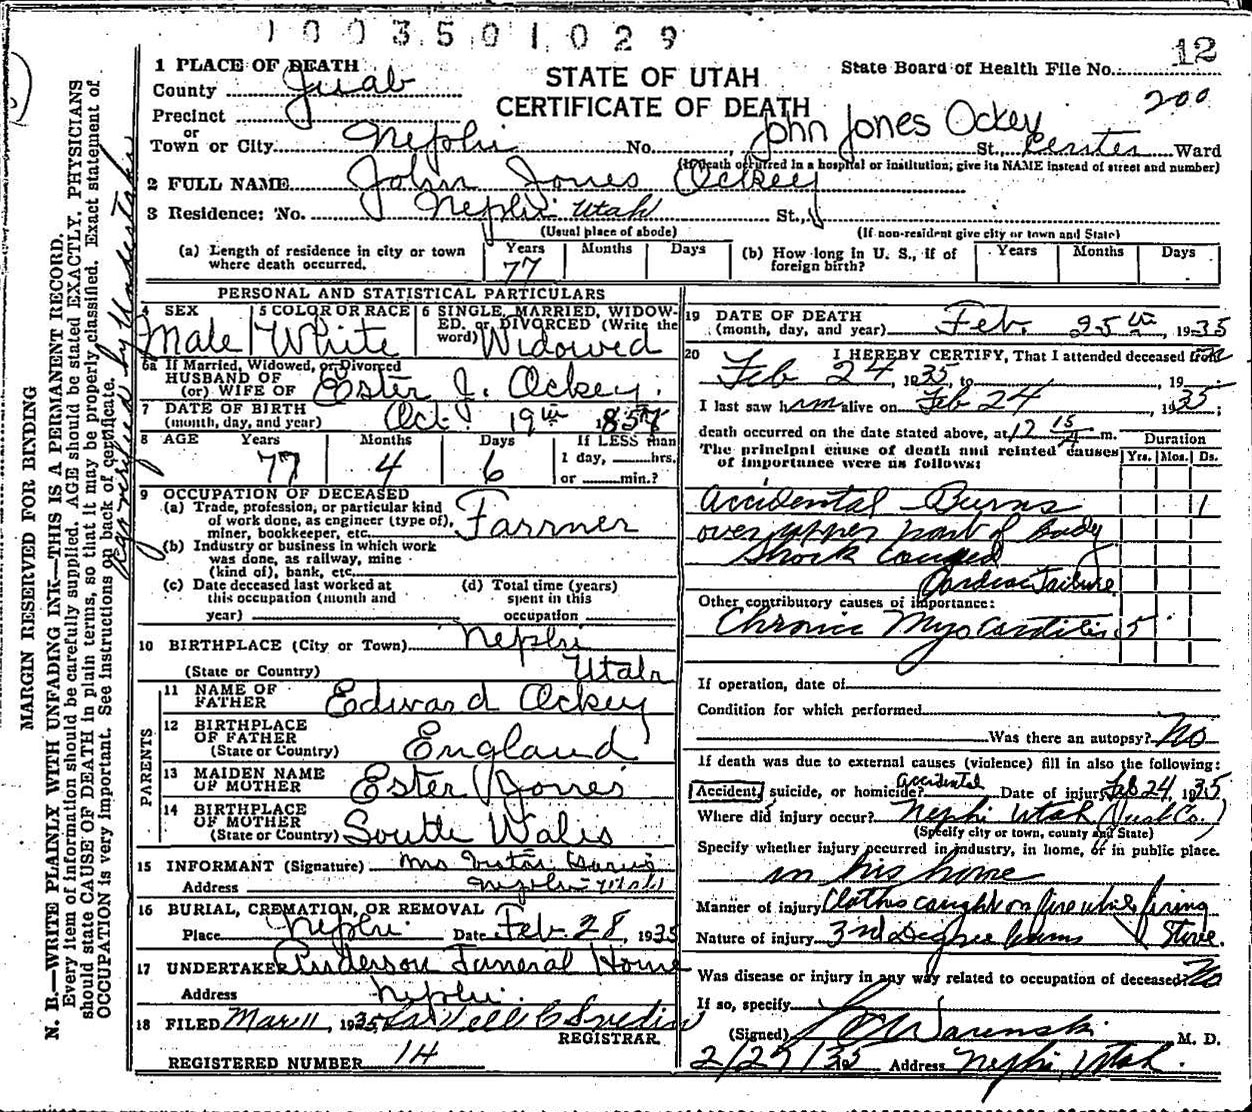 1003501029
12
1 PLACE OF DEATH
STATE OF UTAH
CERTIFICATE OF DEATH
State Board of Health File No.
200
County Juab
Precinct
or
Town or City Nephi No. St. Ward
John Jones Ockey
(If death occurred in a hospital or institution, give its NAME instead of street and number)
2 FULL NAME John Jones Ockey
3 Residence: No. Nephi Utah St.,
(Usual place of abode) (If non-resident give city or town and State)
(a) Length of residence in city or town where death occurred. Years 77 Months Days
(b) How long in U. S., if of foreign birth? Years Months Days
PERSONAL AND STATISTICAL PARTICULARS
4 SEX Male
5 COLOR OR RACE White
6 SINGLE, MARRIED, WIDOWED, or DIVORCED (Write the word) Widowed
6a If Married, Widowed, or Divorced
HUSBAND OF
(or) WIFE OF Ester J. Ockey.
7 DATE OF BIRTH
(month, day, and year) Oct 19th 1857
8 AGE Years 77 Months 4 Days 6
If LESS than
1 day, hrs.
or min.?
9 OCCUPATION OF DECEASED
(a) Trade, profession, or particular kind
of work done, as engineer (type of),
miner, bookkeeper, etc. Farmer
(b) Industry or business in which work
was done, as railway, mine
(kind of), bank, etc.
(c) Date deceased last worked at
this occupation (month and
year)
(d) Total time (years)
spent in this
occupation
10 BIRTHPLACE (City or Town) Nephi
(State or Country) Utah
PARENTS
11 NAME OF
FATHER Edward Ockey
12 BIRTHPLACE
OF FATHER
(State or Country) England
13 MAIDEN NAME
OF MOTHER Ester Jones
14 BIRTHPLACE
OF MOTHER
(State or Country) South Wales
15 INFORMANT (Signature) Mrs
Address Nephi Utah
16 BURIAL, CREMATION, OR REMOVAL
Place Nephi Date Feb 28, 1935
17 UNDERTAKER Anderson Funeral Home
Address Nephi.
18 FILED Mar 11, 1935
REGISTRAR
REGISTERED NUMBER 14
19 DATE OF DEATH
(month, day, and year) Feb. 25th, 1935
20 I HEREBY CERTIFY, That I attended deceased from
Feb 24, 1935, to , 19
I last saw him alive on Feb 24 1935;
death occurred on the date stated above, at 12 15 m.
The principal cause of death and related causes
of importance were as follows:
Duration
Yrs. Mos. Ds.
Accidental Burns 1
over upper part of body
Shock caused
Cardiac Failure
Other contributory causes of importance:
Chronic Myocarditis 5
If operation, date of
Condition for which performed
Was there an autopsy? No
If death was due to external causes (violence) fill in also the following:
Accident, suicide, or homicide? accidental Date of injury Feb 24, 1935
Where did injury occur? Nephi Utah (Juab Co.)
(Specify city or town, county and State)
Specify whether injury occurred in industry, in home, or in public place.
in his home
Manner of injury Clothes caught on fire while firing
Stove.
Nature of injury 3rd Degree burns
Was disease or injury in any way related to occupation of deceased? No
If so, specify
(Signed) M. D.
2/27/35 Address Nephi, Utah
MARGIN RESERVED FOR BINDING
N. B.—WRITE PLAINLY WITH UNFADING INK—THIS IS A PERMANENT RECORD.
Every item of information should be carefully supplied. AGE should be stated EXACTLY. PHYSICIANS
should state CAUSE OF DEATH in plain terms, so that it may be properly classified. Exact statement of
OCCUPATION is very important. See instructions on back of certificate.
by Undertaker